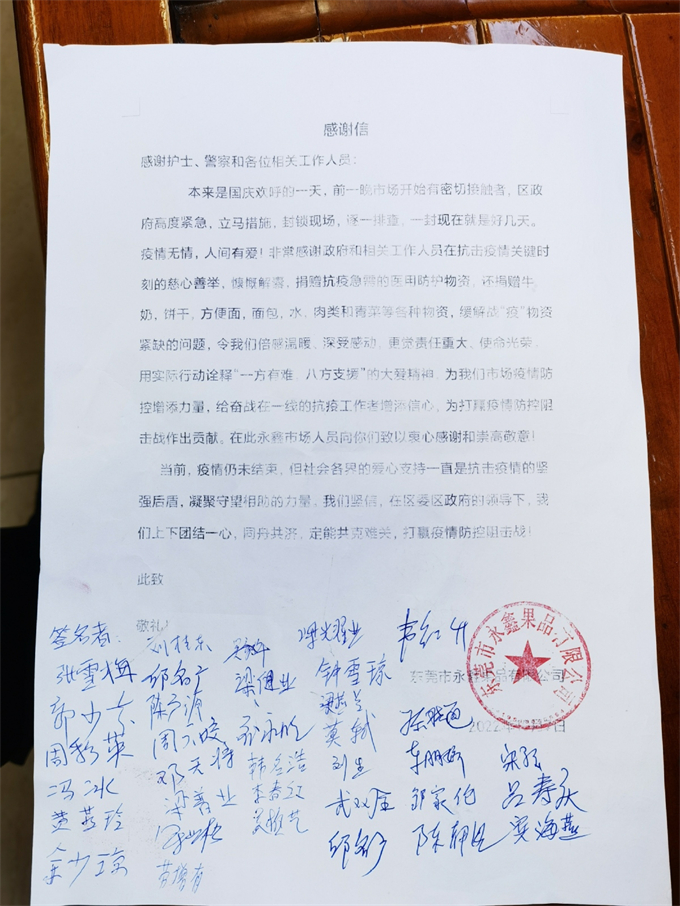 感谢信
感谢护士、警察和各位相关工作人员：
本来是国庆欢呼的一天，前一晚市场开始有密切接触者，区政
府高度紧急，立马措施，封锁现场，逐一排查，一封现在就是好几天。
疫情无情，人间有爱！非常感谢政府和相关工作人员在抗击疫情关键时
刻的慈心善举，慷慨解囊，捐赠抗疫急需的医用防护物资，还捐赠牛
奶，饼干，方便面，面包，水，肉类和青菜等各种物资，缓解战“疫”物资
紧缺的问题，令我们倍感温暖、深受感动，更觉责任重大、使命光荣。
用实际行动诠释“一方有难、八方支援”的大爱精神，为我们市场疫情防
控增添力量，给奋战在一线的抗疫工作者增添信心，为打赢疫情防控阻
击战作出贡献。在此永鑫市场人员向你们致以衷心感谢和崇高敬意！
当前，疫情仍未结束，但社会各界的爱心支持一直是抗击疫情的坚
强后盾，凝聚守望相助的力量。我们坚信，在区委区政府的领导下，我
们上下团结一心，同舟共济，定能共克难关，打赢疫情防控阻击战！
此致
敬礼！
东莞市永鑫果品有限公司
2022年
东莞市永鑫果品有限公司
签名者：
张雪梅 邱名广 梁健业 钟雪琼
郭少东
冯冰 邓天将 韩名浩
黄燕玲 梁善业 武双全 邹家伦 吕寿庆
余少琼 劳增有 邱名广 梁海燕